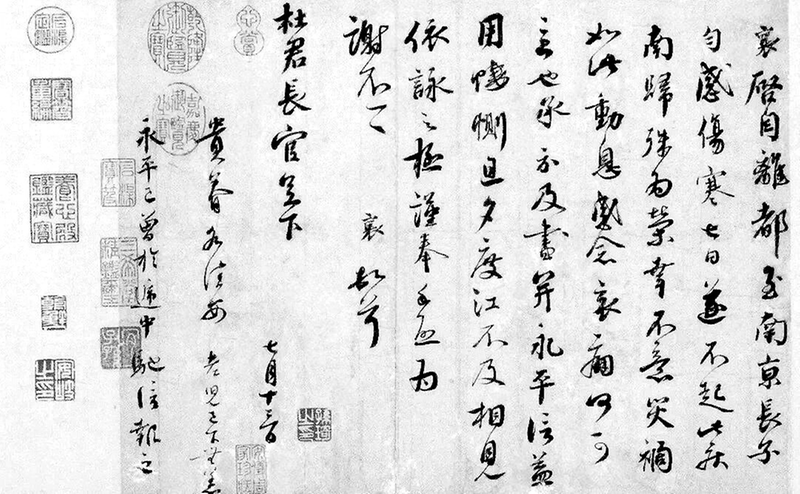 襄啓自離都至南京長子
勻感傷寒七日遂不起此疾
南歸殊為榮幸不意災禍
如此動息感念哀痛何可
言也承示及書并永平信益
用悽惻旦夕度江不及相見
依詠之極謹奉手啟為
謝不一一 襄 頓首
杜君長官足下
七月十三日
貴眷各佳安 老兒已下無恙
永平已曾於遞中馳信報之